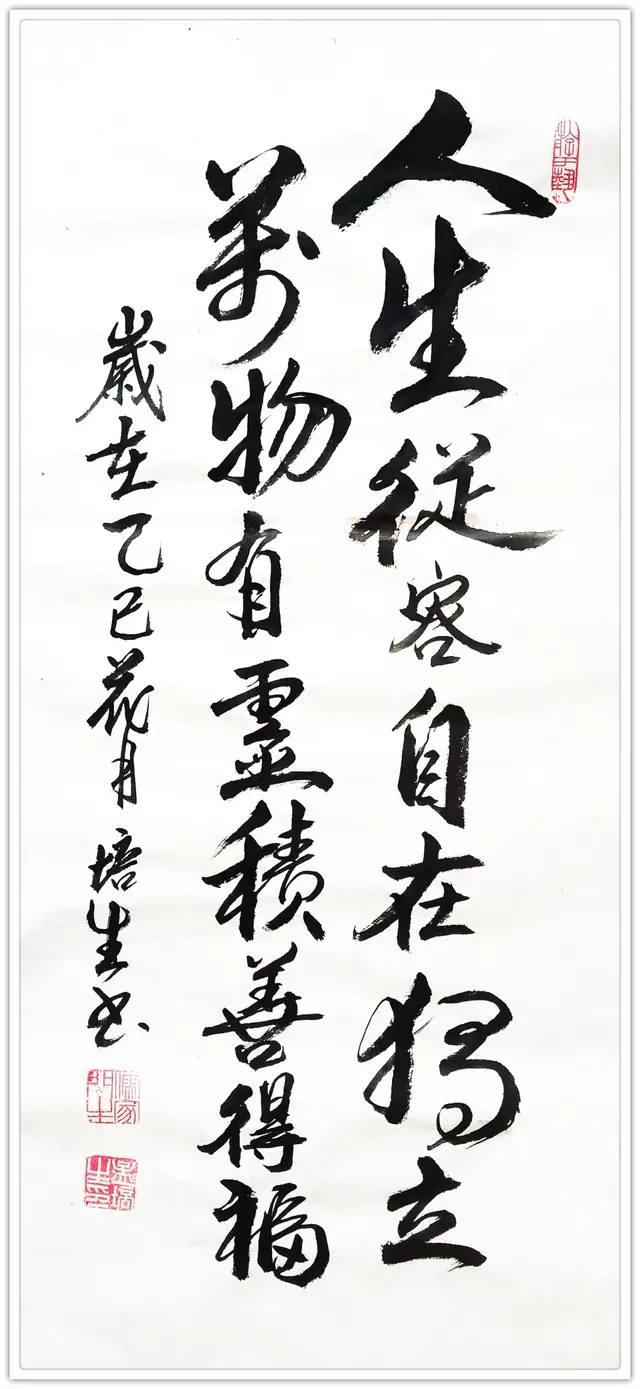 人生從容自在獨立
萬物有靈積善得福
歲在乙巳花月培生书